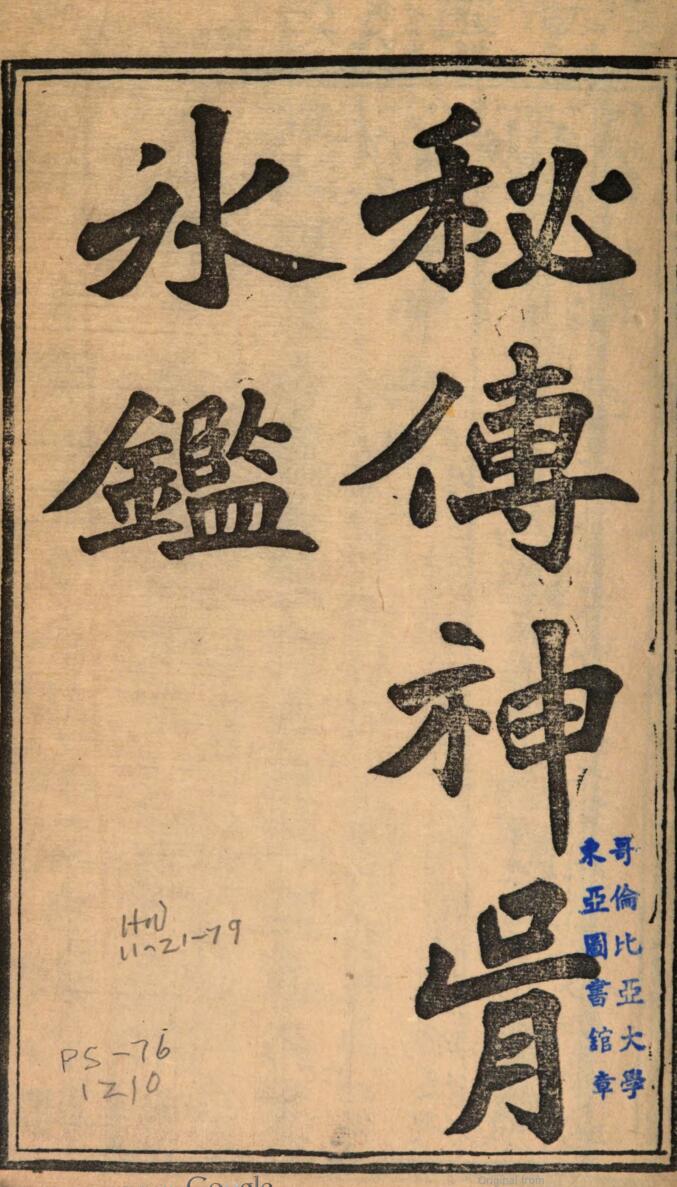 秘傳神骨
冰鑑
哥倫比亞大學
東亞圖書館章
11-21-79
PS-76
1210
Google
Original from